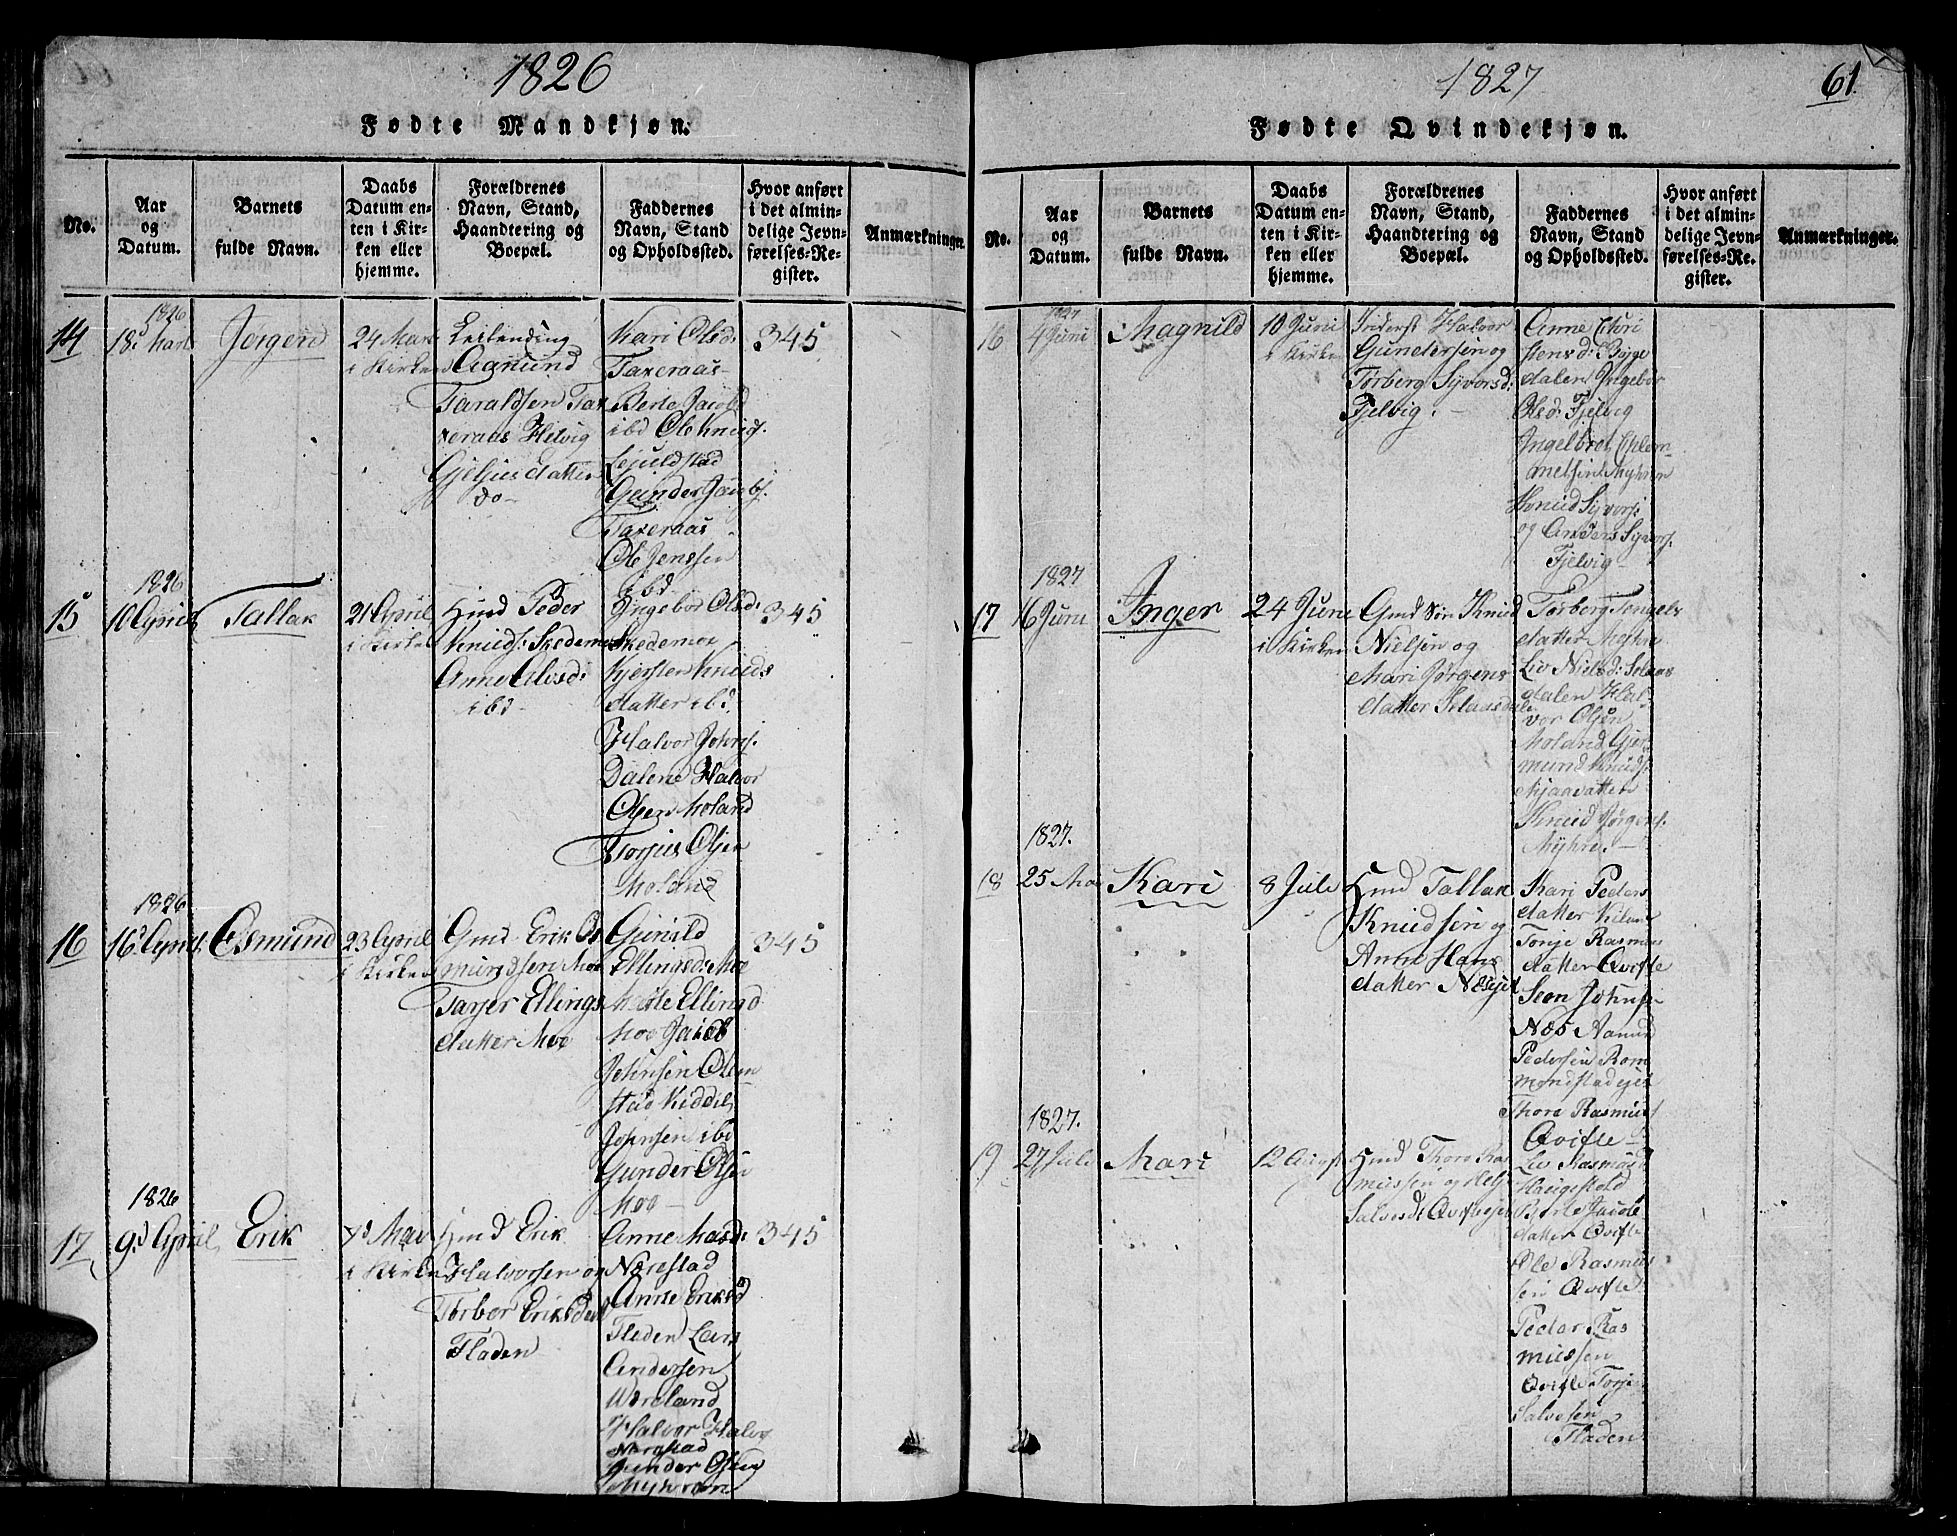 1826
Fødte Mandkjøn.
No.
Aar
og
Datum.
Barnets
fulde Navn.
Daabs
Datum en-
ten i Kir-
ken eller
hjemme.
Forældrenes
Navn, Stand,
Haandtering og
Boepæl.
Faddernes
Navn, Stand
og Opholdssted.
Hvor anført
i det almin-
delige Jevn-
førelses-Re-
gister.
Anmærkninger.
14
1826
18d Marts
Jørgen
24 Mars
i Kirken
Leilending
Aamund
Taraldsen Tax
eraas Helvig
datter
do
Kari Olsd:
Taxeraas
Berte Jacobd
ibd Ole Knuds.
Gunder Jacobs.
Taxeraas
Ole Jenssen
ibd
345
15
1826
10 April
Tallak
21 April
i Kirken
Hmd Peder
Knuds: Skedemoe
Anne Olvsd:
ibd
Ingebor Olsd:
Skedemoe
Kjersten Knuds
datter ibd.
Halvor Johns.
Dalene Halvor
Olsen Moland
Torjus Olsen
Moland
345
16
1826
16d April
Osmund
23 April
i Kirken
Gmd Erik Os
mundsen Moe
Tarjer Ellings
datter Moe
Gunild
Ellingsd: Moe
Marte Ellingsd
Moe Jacob
Johnsen Olim
stad Kiddil
Johnsen ibd
Gunder Olsen
Moe
345
17
1826
9d April
Erik
7d Mai
i Kirken
Hmd Erik
Halvorsen og
Torbor Eriksdatt
Fladen
Anne Masd:
Nærestad
Anne Eriksd
Fladen Lars
Andersen
Woreland
Halvor Halv
Nærstad
Gunder Olsen
345
1827
61
Fødte Qvindekjøn.
No.
Aar
og
Datum.
Barnets
fulde Navn.
Daabs
Datum en-
ten i Kir-
ken eller
hjemme.
Forældrenes
Navn, Stand,
Haandtering og
Boepæl.
Faddernes
Navn, Stand
og Opholdssted.
Hvor anført
i det almin-
delige Jevn-
førelses-Re-
gister.
Anmærkninger.
16
1827
4 Juni
Magnild
10 Juni
i Kirken
Inderst Halvor
Gundersen og
Torberg Syvorsd:
Fjelvig.
Anne Chri
stensd: Bøye
dalen Ingebor
Olsd: Fjelvig
Ingelbret Clem
metsen Myhren
Knud Syvors.
og Anders Syvors.
Fjelvig
17
1827
16 Juni
Inger
24 Juni
i Kirken
Gmd Søn Knud
Nielsen og
Mari Jørgens
datter Selaasdale
Torberg Tengels
datter Myhre
Liv Nielsd: Selaas
dalen Hal
vor Olsen
Moland Gjer
mund Knuds.
Mjaavatten
Knud Jørgens.
Myhre
18
1827.
25 Mai
Kari
8 Juli
Hmd Tallak
Knudsen og
Anne Hans
datter Næsejet
Kari Peders
datter
Tonje Rasmus
datter Qvifte
Sven Johnsen
Næs Aamund
Pedersen Rom
mondstadejet
Thore Rasmus
Qvifte
19
1827.
27 Juli
Mari
12 August
Hmd Thore Ras
mussen og Helje
Salvesd: Qviftejet
Liv Rasmusd
Haugestold
Berte Jacob
datter Qvifte
Ole Rasmus
sen Qvifte
Peder Ras
mussen
Qvifte Torje
Salvesen
Fladen